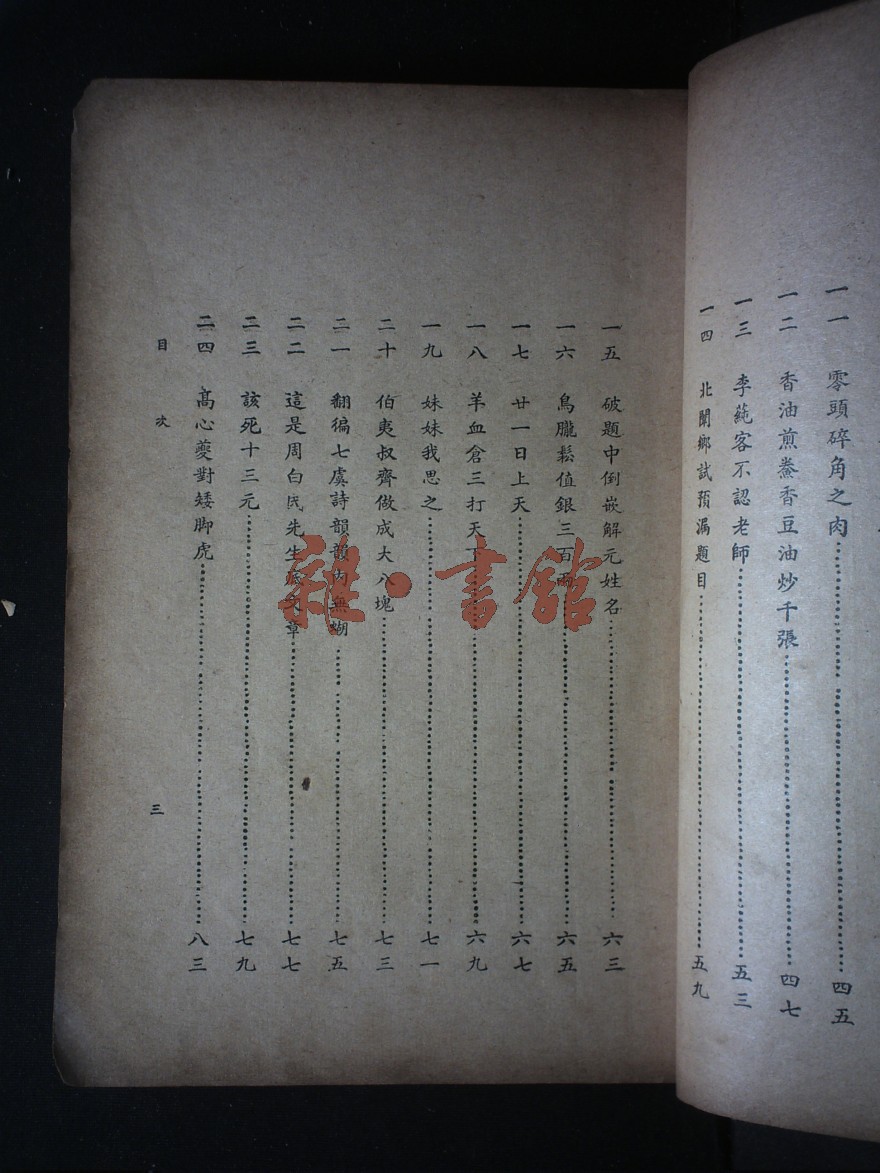 一一 零頭碎角之肉 四五
一二 香油煎鯗香豆油炒千張 四七
一三 李蒓客不認老師 五三
一四 北闈鄉試預漏題目 五九
一五 破題中倒嵌解元姓名 六三
一六 鳥朧鬆值銀三百兩 六五
一七 廿一日上天 六七
一八 羊血倉三打天下 六九
一九 妹妹我思之 七一
二十 伯夷叔齊做成大八塊 七三
二一 翻徧七虞詩韻韻內無蝴 七五
二二 這是周白民先生底文章 七七
二三 該死十三元 七九
二四 高心夔對矮脚虎 八三
目次 三
雜·書館